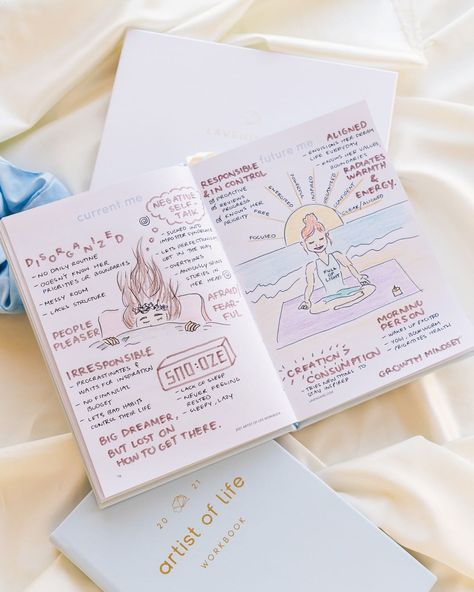 LAVEND
current me
NEGATIVE
SELF-
TALK
DISORGANIZED
- NO DAILY ROUTINE
- DOESN'T KNOW HER
PRIORITIES OR BOUNDARIES
- MESSY ROOM
- LACKS STRUCTURE
- SUCKED INTO
IMPOSTER SYNDROME
- LETS PERFECTIONISM
GET IN THE WAY
- OVERTHINKS
- ANXIOUSLY SPINS
STORIES IN
HER HEAD
PEOPLE
PLEASER
AFRAID
FEAR-
FUL
IRRESPONSIBLE
- PROCRASTINATES &
WAITS FOR INSPIRATION
- NO FINANCIAL
BUDGET
- LETS BAD HABITS
CONTROL THEIR LIFE
SNO-OZE
- LACK OF SLEEP
- NEVER FEELING
RESTED
- SLEEPY, LAZY
BIG DREAMER,
BUT LOST ON
HOW TO GET THERE.
2021 ARTIST OF LIFE WORKBOOK
future me
RESPONSIBLE
& IN CONTROL
PROACTIVE
REVIEWS
PROGRESS
KNOWS HER
PRIORITY
ALIGNED
- ENVISIONS HER DREAM
LIFE EVERYDAY
- KNOWS HER VALUES,
BOUNDARIES
RADIATES
WARMTH
& ENERGY.
FOCUSED
FREE
INSPIRED
CONFIDENT
CLEAR/ALIGNED
FULL
OF
LIGHT
MORNING
PERSON
- WAKES UP EXCITED
- YOGI, BOOKWORM
- PRIORITIZES HEALTH
CREATION >
CONSUMPTION
- TRIES NEW THINGS TO
STAY INSPIRED
GROWTH MINDSET
LAVENDAIRE.COM
2021
artist of life
WORKBOOK